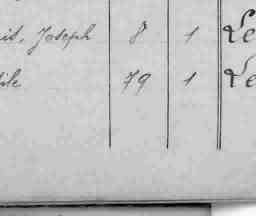 is, Joseph 8 1 Le
ile 79 1 Le